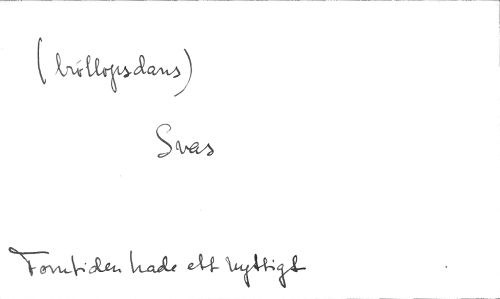 (bröllopsdans)
Svas
Forntiden hade ett nyttigt